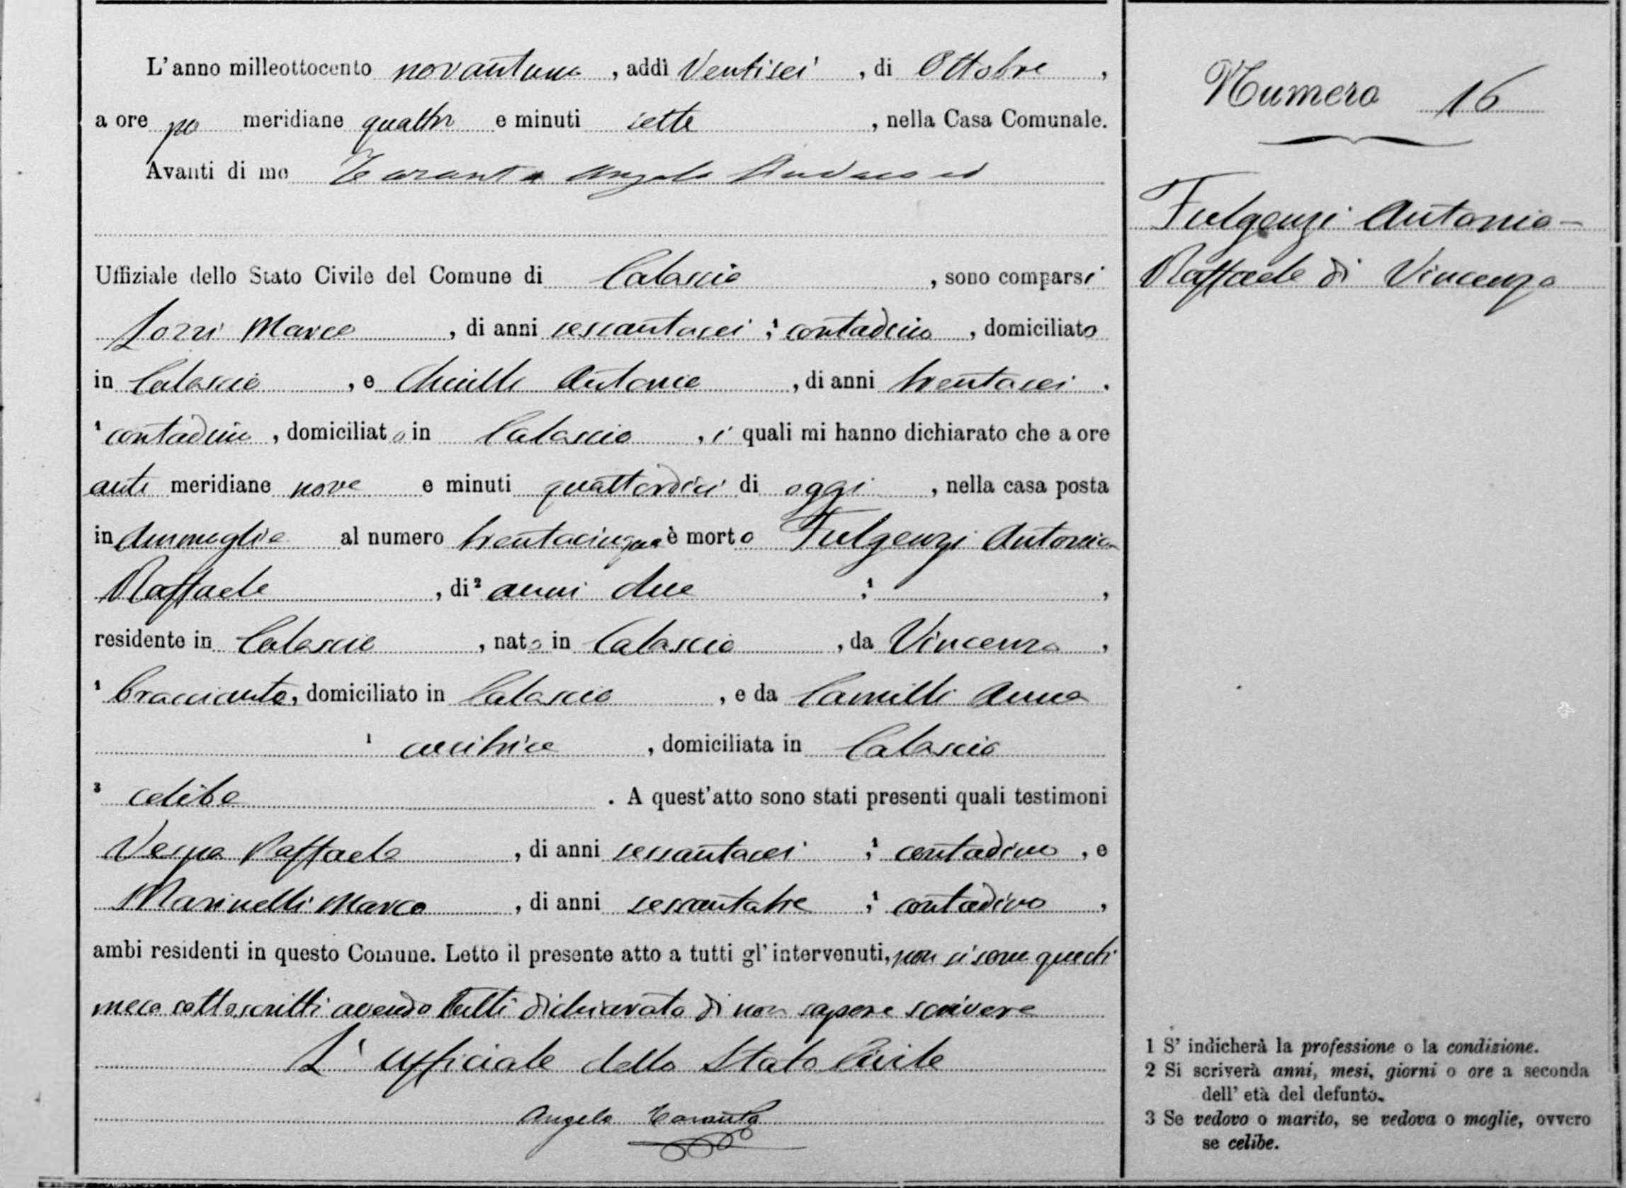 L'anno milleottocento novantuno, addì Ventisei, di Ottobre,
a ore po meridiane quattro e minuti sette, nella Casa Comunale.
Avanti di me Taranta Angelo Sindaco ed
Uffiziale dello Stato Civile del Comune di Calascio, sono comparsi
Marco, di anni sessantasei, ¹ contadino, domiciliato
in Calascio, e Antonio, di anni trentasei,
¹ contadino, domiciliato in Calascio, i quali mi hanno dichiarato che a ore
anti meridiane nove e minuti quattordici di oggi, nella casa posta
in al numero trentacinque è morto Fulgenzi Antonio
Raffaele, di ² anni due ¹,
residente in Calascio, nato in Calascio, da Vincenzo,
¹ bracciante, domiciliato in Calascio, e da Camilli Anna
¹ cucitrice, domiciliata in Calascio
³ celibe. A quest'atto sono stati presenti quali testimoni
Vespa Raffaele, di anni sessantasei, ¹ contadino, e
Marinelli Marco, di anni sessantatre, ¹ contadino,
ambi residenti in questo Comune. Letto il presente atto a tutti gl'intervenuti, non si sono questi
meco sottoscritti avendo tutti dichiarato di non sapere scrivere
L'Ufficiale dello Stato Civile
Angelo Taranta
Numero 16
Fulgenzi Antonio-
Raffaele di Vincenzo
1 S' indicherà la professione o la condizione.
2 Si scriverà anni, mesi, giorni o ore a seconda
dell' età del defunto.
3 Se vedovo o marito, se vedova o moglie, ovvero
se celibe.